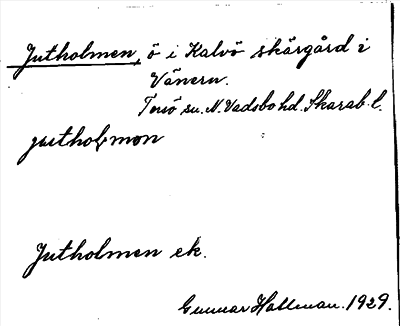 Jutholmen, ö i Kalvö skärgård i
Vänern.
Torsö sn. N. Vadsbo hd. Skarab. l.
jutholmon
Jutholmen ek.
Gunnar Hallman. 1929.